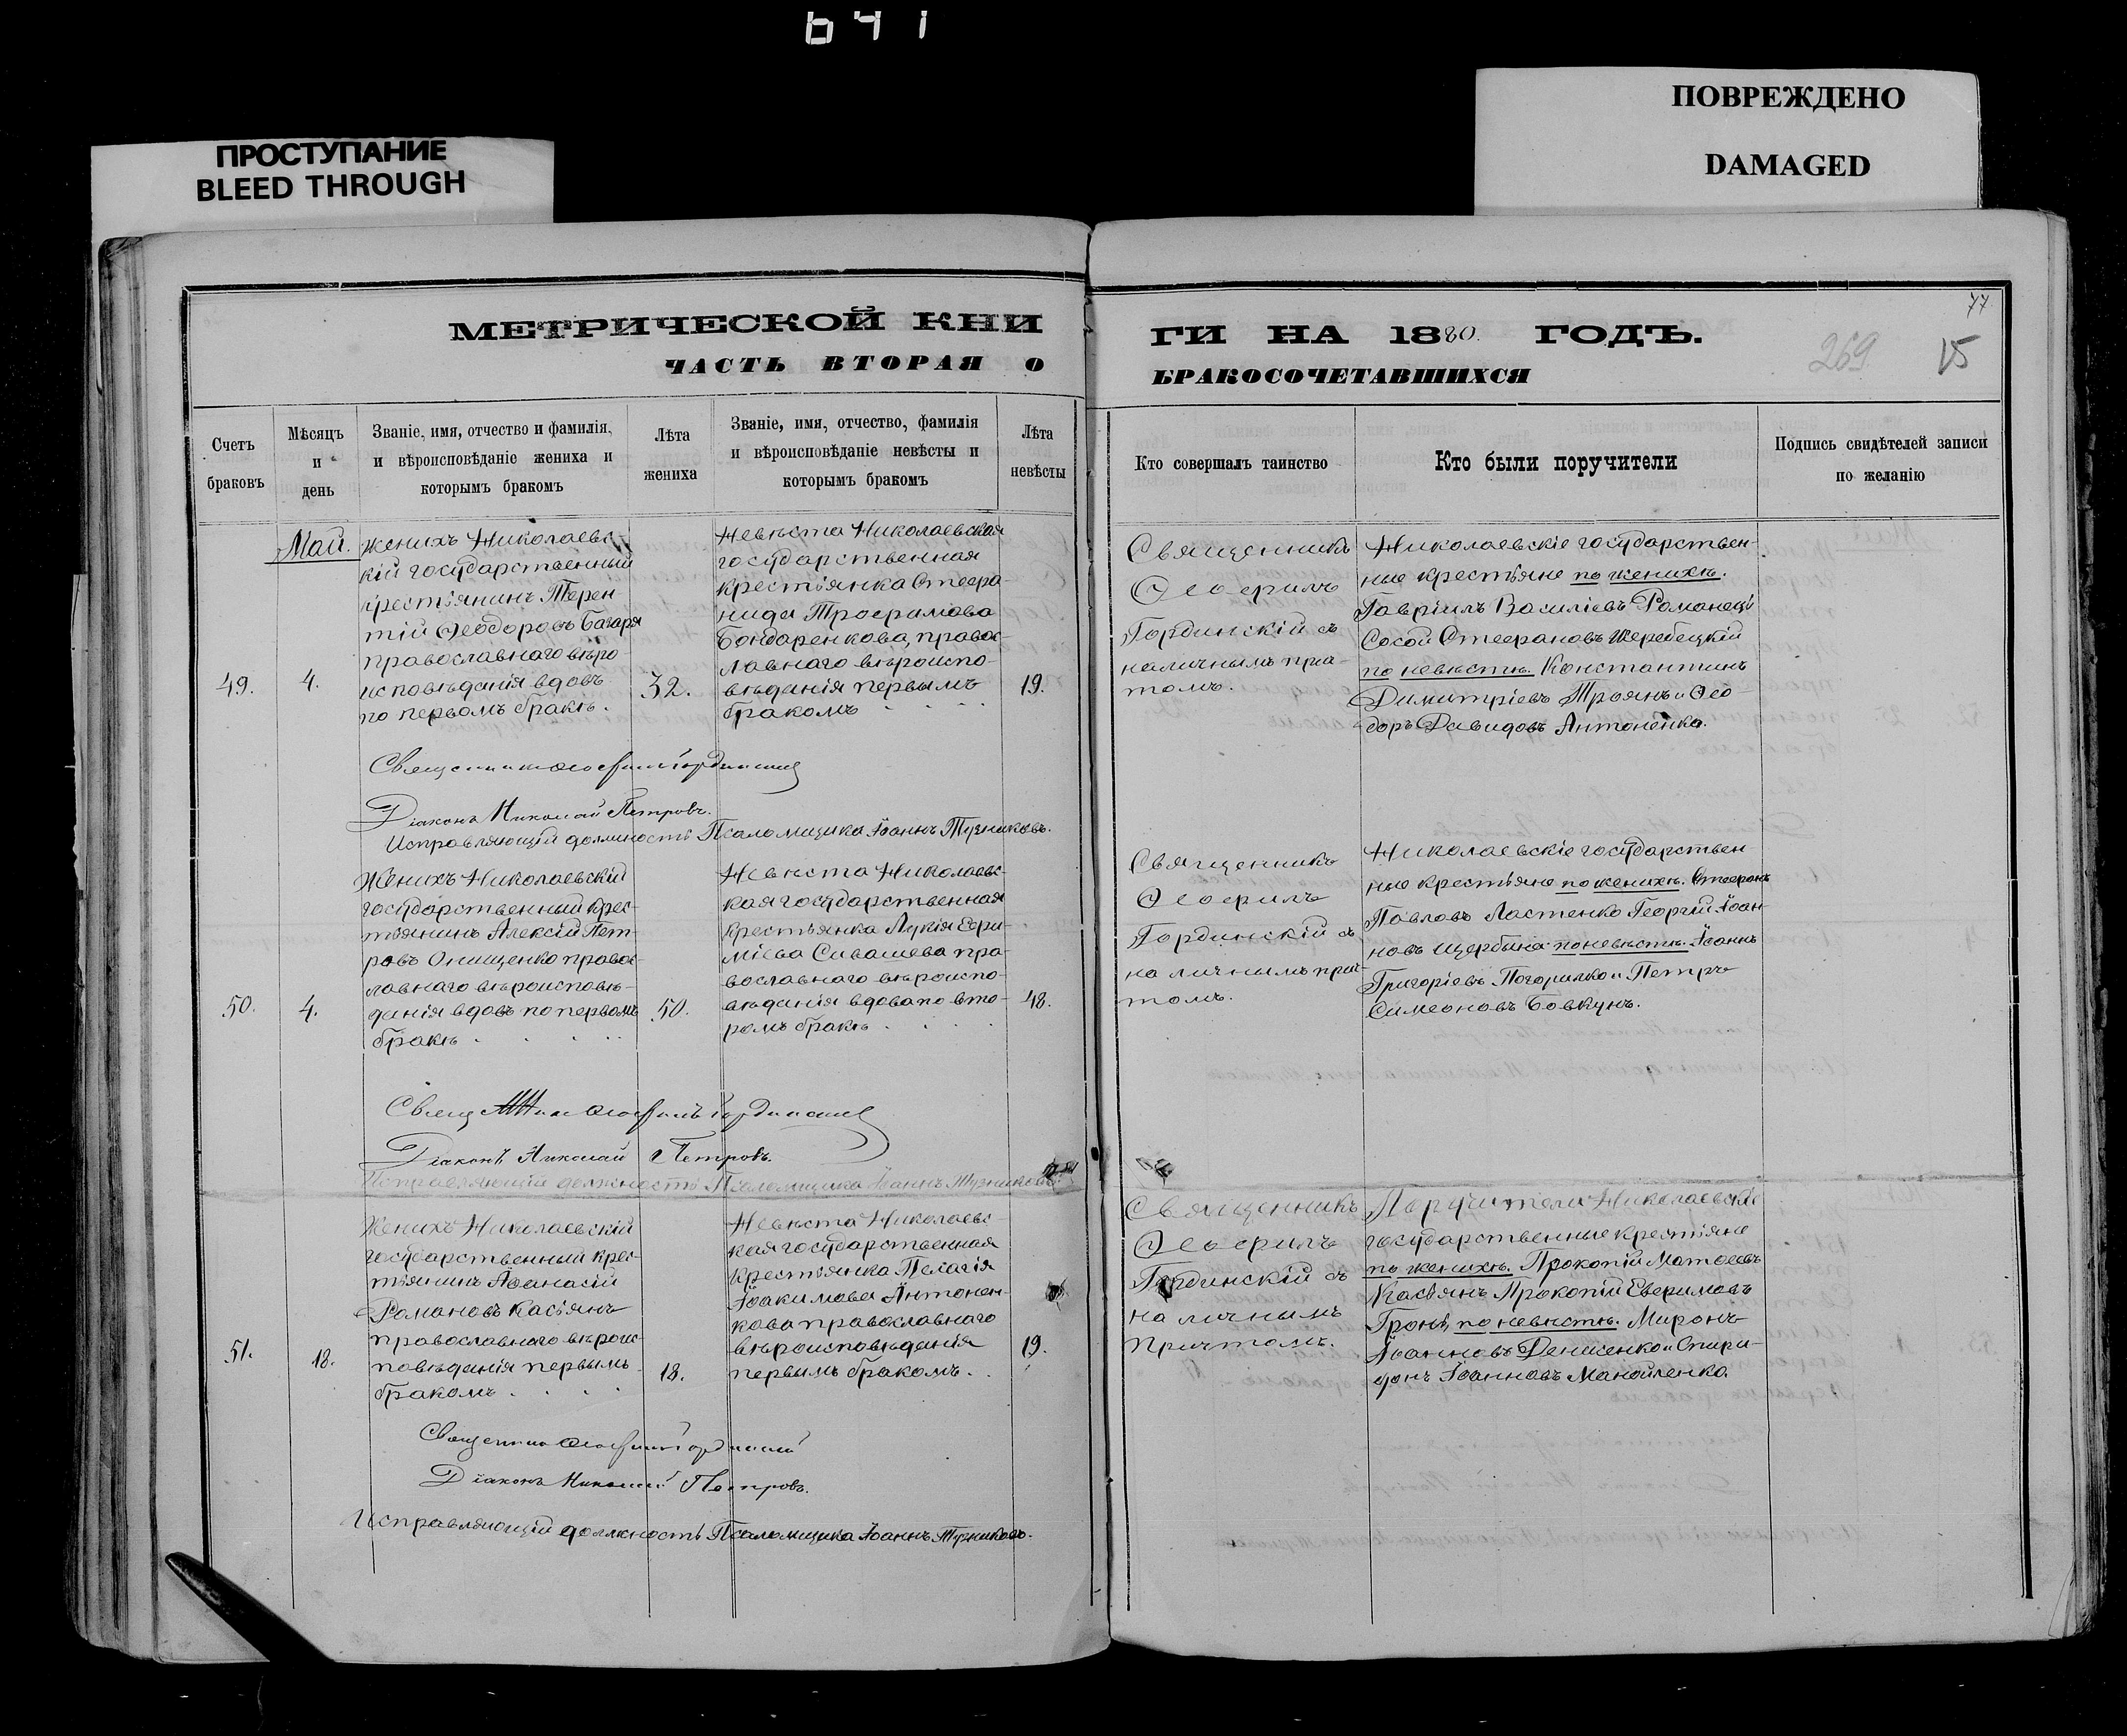 641
ПРОСТУПАНИЕ
BLEED THROUGH
ПОВРЕЖДЕНО
DAMAGED
77
МЕТРИЧЕСКОЙ КНИ
ГИ НА 1880 ГОДЪ.
269
15
ЧАСТЬ ВТОРАЯ О
БРАКОСОЧЕТАВШИХСЯ
Счетъ
браковъ
Мѣсяцъ
и
день
Званіе, имя, отчество и фамилія,
и вѣроисповѣданіе жениха и
которымъ бракомъ
Лѣта
жениха
Званіе, имя, отчество, фамилія
и вѣроисповѣданіе невѣсты и
которымъ бракомъ
Лѣта
невѣсты
Кто совершалъ таинство
Кто были поручители
Подпись свидѣтелей записи
по желанію
49.
Май.
4.
Женихъ Николаевс-
кій государственный
крестьянинъ Терен
тій Ѳеодоровъ
православнаго вѣро-
исповѣданія вдовъ
по первомъ бракѣ.
32.
Невѣста Николаевская
государственная
крестьянка Стефа-
нида Трофимова
Бондаренкова, правос-
лавнаго вѣроиспо-
вѣданія первымъ
бракомъ
19.
Священникъ
Ѳеофилъ
Гординскій съ
наличнымъ при-
томъ.
Николаевскіе государствен-
ные крестьяне по женихѣ.
Гавріилъ Василіевъ Романецъ
Сосой Стефановъ Жеребецкій
по невѣстѣ. Константинъ
Димитріевъ Троянъ и Ѳео-
доръ Давидовъ Антоненко.
Священникъ Ѳеофилъ Гординскій
Діаконъ Николай Петровъ.
Исправляющій должность Псаломщика Іоаннъ Тузниковъ.
50.
4.
Женихъ Николаевскій
государственный крес-
тьянинъ Алексій Пет-
ровъ Онищенко правос-
лавнаго вѣроисповѣ-
данія вдовъ по первомъ
бракѣ
50.
Невѣста Николаевс-
кая государственная
крестьянка Лукія Ефи-
міева Сивашева пра-
вославнаго вѣроиспо-
вѣданія вдова по вто-
ромъ бракѣ
48.
Священникъ
Ѳеофилъ
Гординскій съ
наличнымъ прич-
томъ.
Николаевскіе государствен
ные крестьяне по женихѣ. Стефанъ
Павловъ Ластенко Георгій Іоан-
новъ Щербина по невѣстѣ. Іоаннъ
Григоріевъ Погорилко и Петръ
Симеоновъ Бовкунъ.
Священникъ Ѳеофилъ Гординскій
Діаконъ Николай Петровъ.
Исправляющій должность Псаломщика Іоаннъ Тузниковъ.
51.
18.
Женихъ Николаевскій
государственный крес-
тьянинъ Аѳанасій
Романовъ Касьянъ
православнаго вѣроис-
повѣданія первымъ
бракомъ
18.
Невѣста Николаевс-
кая государственная
крестьянка Пелагія
Іоакимова Антонен-
кова православнаго
вѣроисповѣданія
первымъ бракомъ.
19.
Священникъ
Ѳеофилъ
Гординскій съ
наличнымъ
причтомъ.
Поручители Николаевскіе
государственные крестьяне
по женихѣ. Прокопій Матѳеевъ
Касьянъ Прокопій Евфимовъ
по невѣстѣ. Миронъ
Іоанновъ Денисенко и Спири-
донъ Іоанновъ Манойленко.
Священникъ Ѳеофилъ Гординскій
Діаконъ Николай Петровъ.
Исправляющій должность Псаломщика Іоаннъ Тузниковъ.